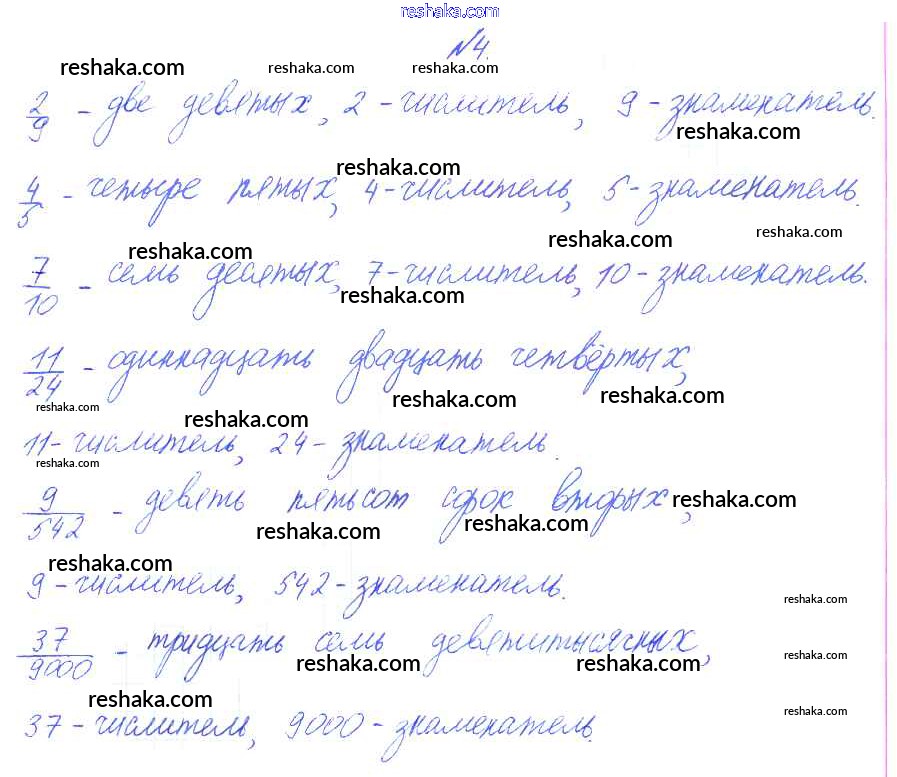 reshaka.com
№4.
reshaka.com reshaka.com reshaka.com
2/9 - две девятых, 2 - числитель, 9 - знаменатель.
reshaka.com
reshaka.com
4/5 - четыре пятых, 4 - числитель, 5 - знаменатель.
reshaka.com reshaka.com reshaka.com
7/10 - семь десятых, 7 - числитель, 10 - знаменатель.
reshaka.com
11/24 - одиннадцать двадцать четвёртых,
reshaka.com reshaka.com reshaka.com reshaka.com
11 - числитель, 24 - знаменатель.
reshaka.com
9/542 - девять пятьсот сорок вторых, reshaka.com
reshaka.com reshaka.com
reshaka.com
9 - числитель, 542 - знаменатель.
reshaka.com
37/9000 - тридцать семь девятитысячных,
reshaka.com reshaka.com reshaka.com
reshaka.com
37 - числитель, 9000 - знаменатель.
reshaka.com